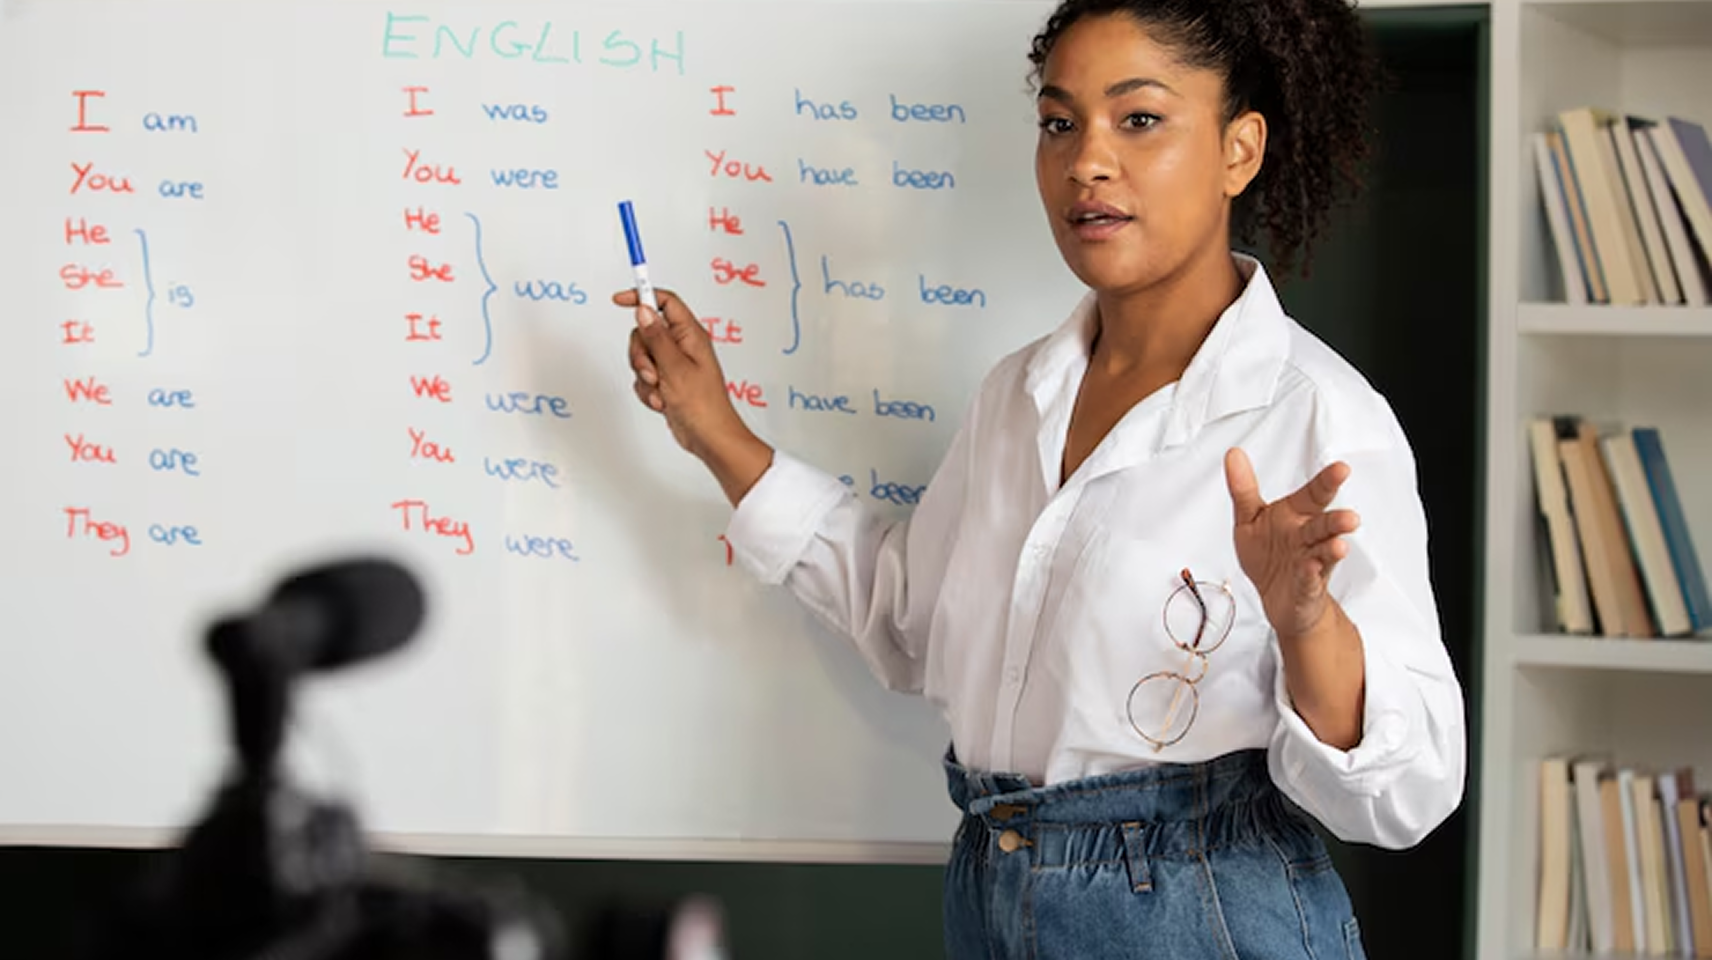 ENGLISH
I am
You are
He
She
It
is
We are
You are
They are
I was
You were
He
She
It
was
We were
You were
They were
I has been
You have been
He
She
It
has been
We have been
been